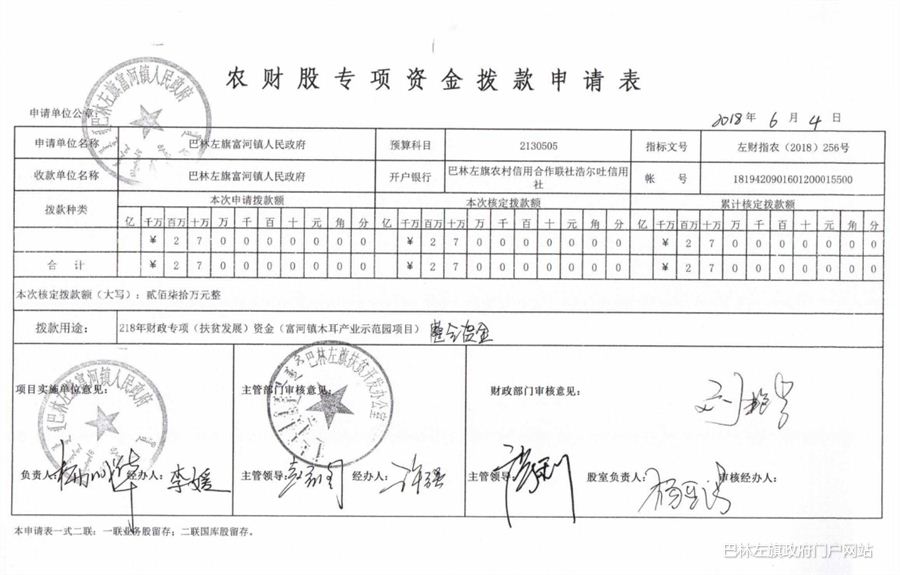 农财股专项资金拨款申请表
申请单位公章：
2018年 6 月 4 日
巴林左旗富河镇人民政府
申请单位名称 巴林左旗富河镇人民政府 预算科目 2130505 指标文号 左财指农（2018）256号
收款单位名称 巴林左旗富河镇人民政府 开户银行 巴林左旗农村信用合作联社浩尔吐信用社 帐 号 1819420901601200015500
拨款种类 本次申请拨款额 本次核定拨款额 累计核定拨款额
亿 千万 百万 十万 万 千 百 十 元 角 分 亿 千万 百万 十万 万 千 百 十 元 角 分 亿 千万 百万 十万 万 千 百 十 元 角 分
¥ 2 7 0 0 0 0 0 0 0 ¥ 2 7 0 0 0 0 0 0 0 ¥ 2 7 0 0 0 0 0 0 0
合 计 ¥ 2 7 0 0 0 0 0 0 0 ¥ 2 7 0 0 0 0 0 0 0 ¥ 2 7 0 0 0 0 0 0 0
本次核定拨款额（大写）：贰佰柒拾万元整
拨款用途： 218年财政专项（扶贫发展）资金（富河镇木耳产业示范园项目） 整合资金
项目实施单位意见： 主管部门审核意见： 财政部门审核意见：
巴林左旗富河镇人民政府
巴林左旗扶贫开发办公室
负责人： 经办人：李媛 主管领导： 经办人：许强 主管领导： 股室负责人： 审核经办人：
本申请表一式二联：一联业务股留存；二联国库股留存。
巴林左旗政府门户网站